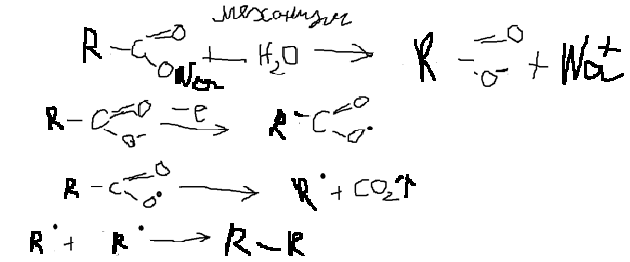 механизм
R–C(=O)ONa + H₂O → R–C(=O)O⁻ + Na⁺
R–C(=O)O⁻ –e → R–C(=O)O·
R–C(=O)O· → R· + CO₂↑
R· + R· → R–R